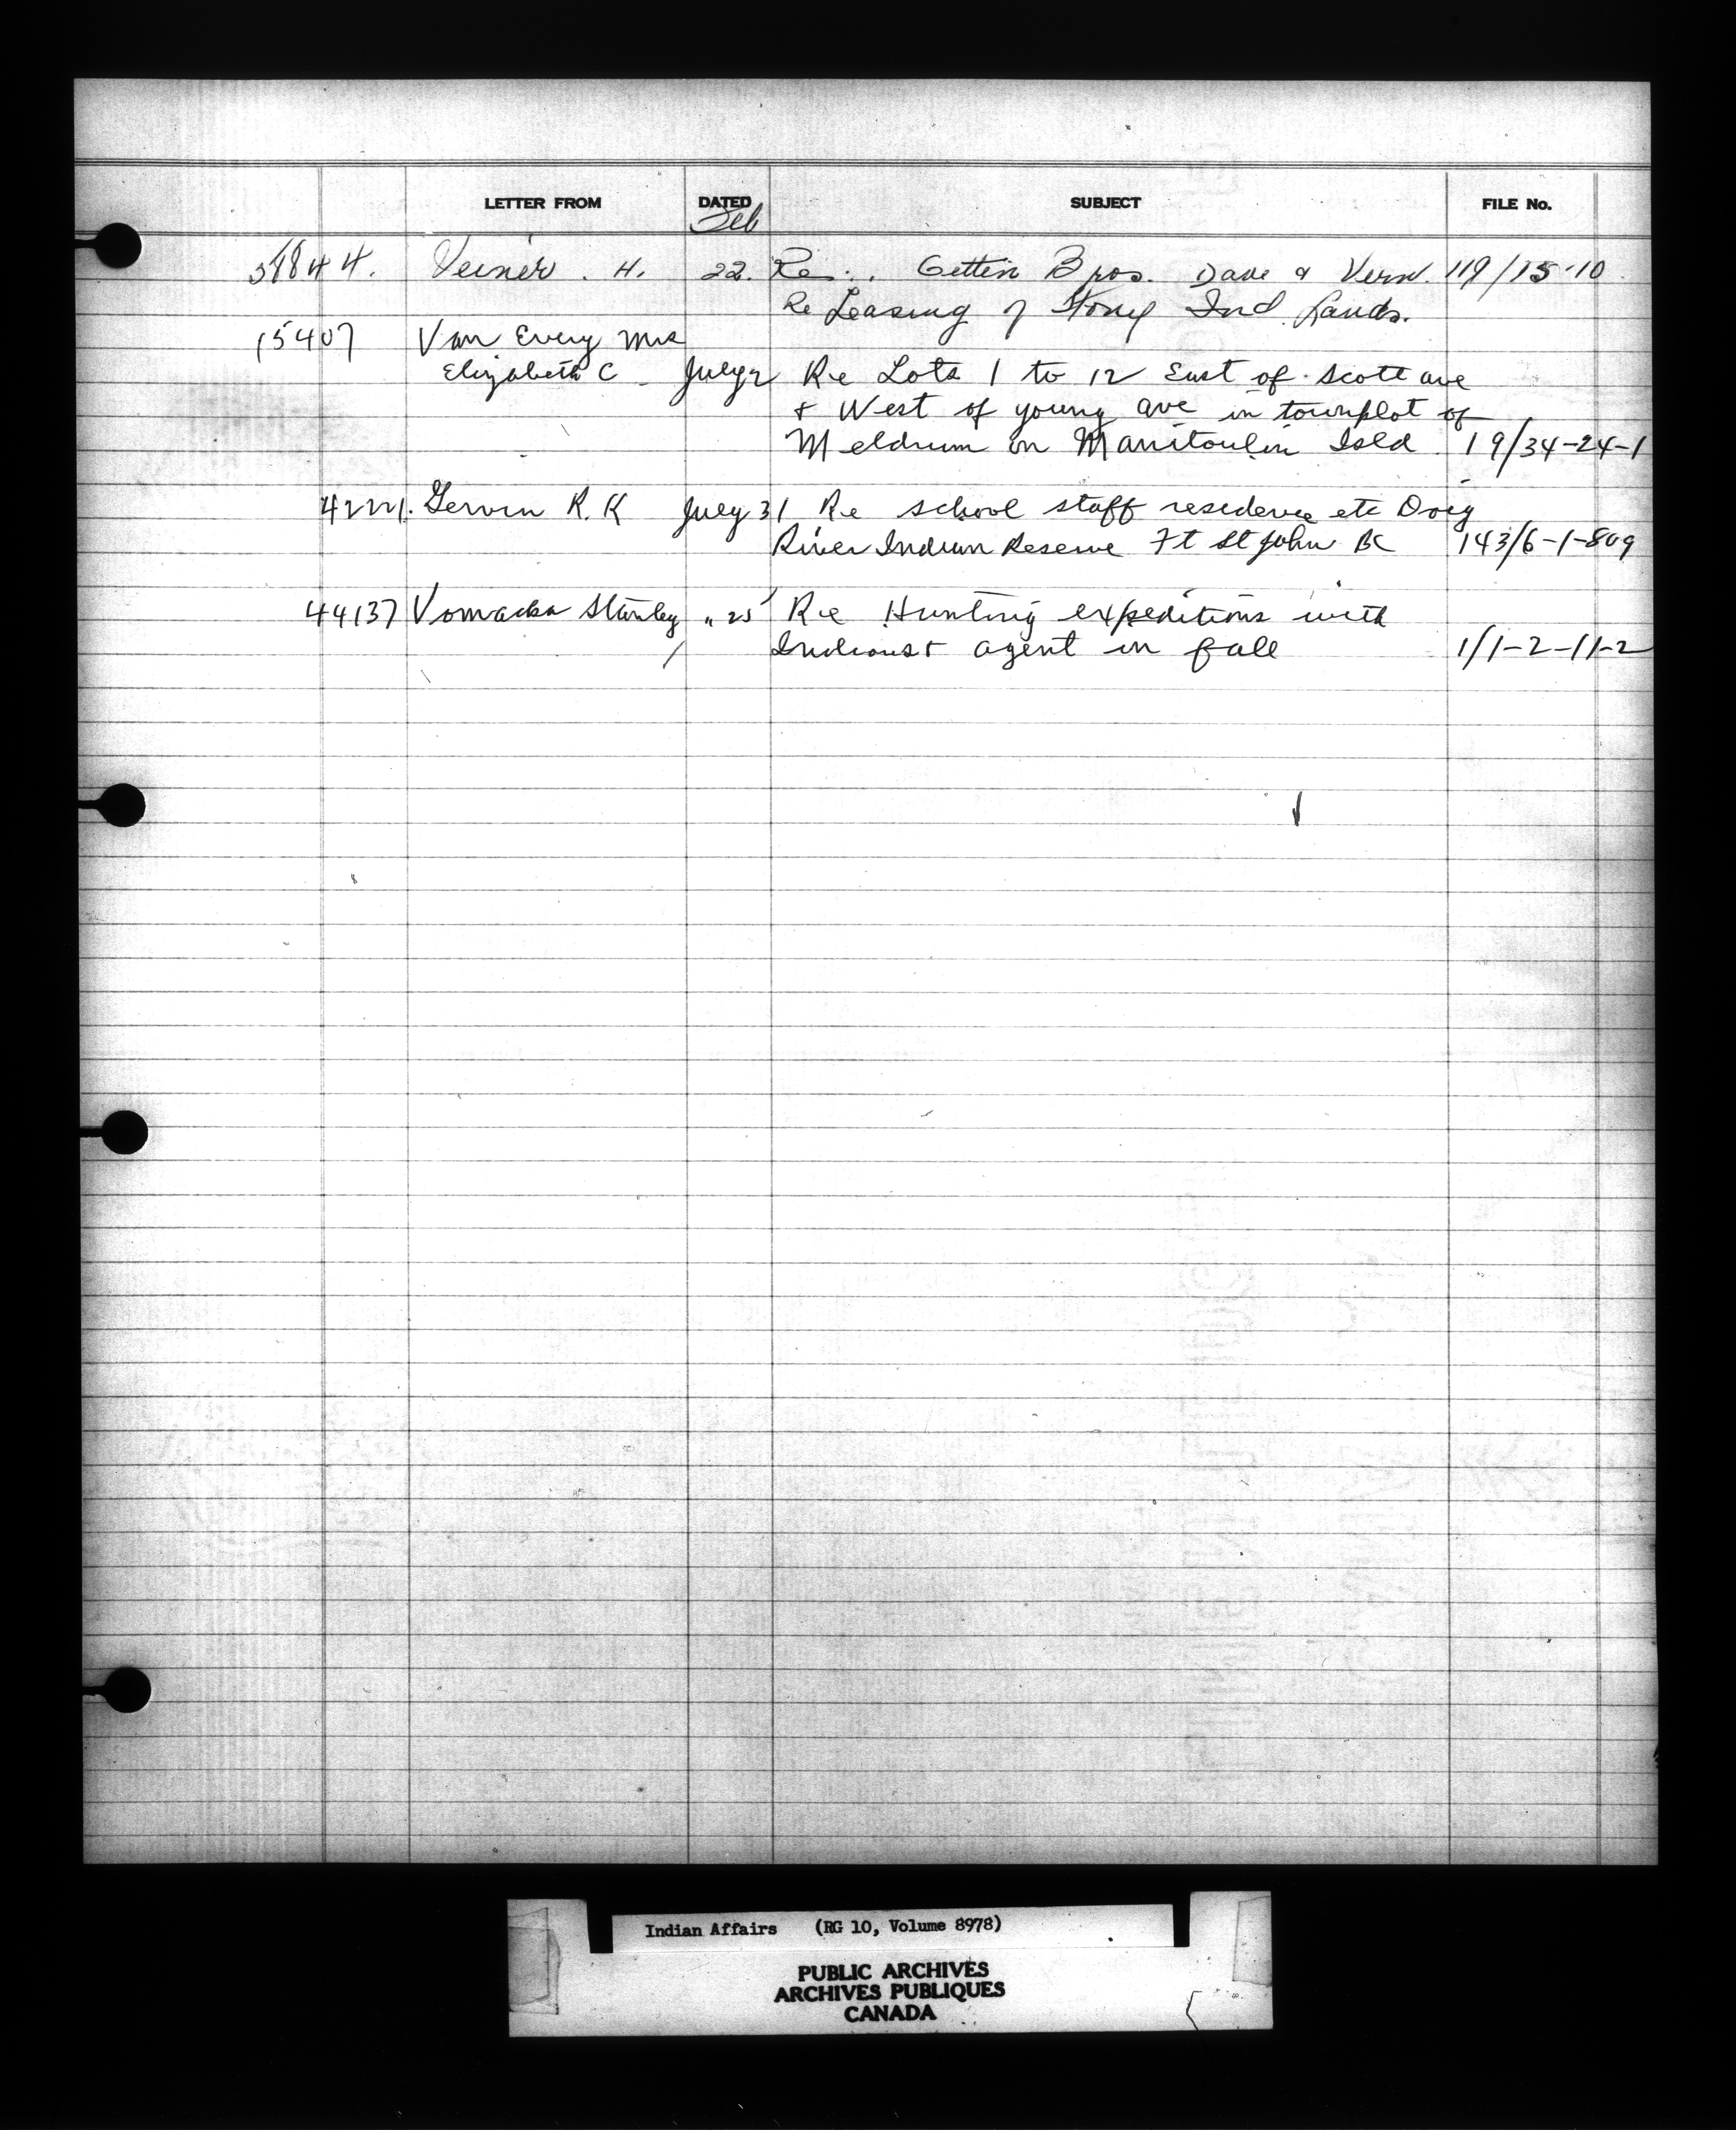 LETTER FROM DATED SUBJECT FILE No.
Feb
H. 22. Re. Gettin Bros. Dave & Vern. 119/15-10
Re Leasing of Stony Ind. Lands.
15407 Van Every Mrs
Elizabeth C July 2 Re Lots 1 to 12 East of Scott ave
& West of young ave in townplot of
Meldrum on Manitoulin Isld 19/34-24-1
42221. R. K July 31 Re school staff residence etc Doig
River Indian Reserve Ft St John BC 143/6-1-809
44137 Vomacka Stanley " 25 Re Hunting expeditions with
Indians & agent in fall 1/1-2-11-2
Indian Affairs (RG 10, Volume 8978)
PUBLIC ARCHIVES
ARCHIVES PUBLIQUES
CANADA